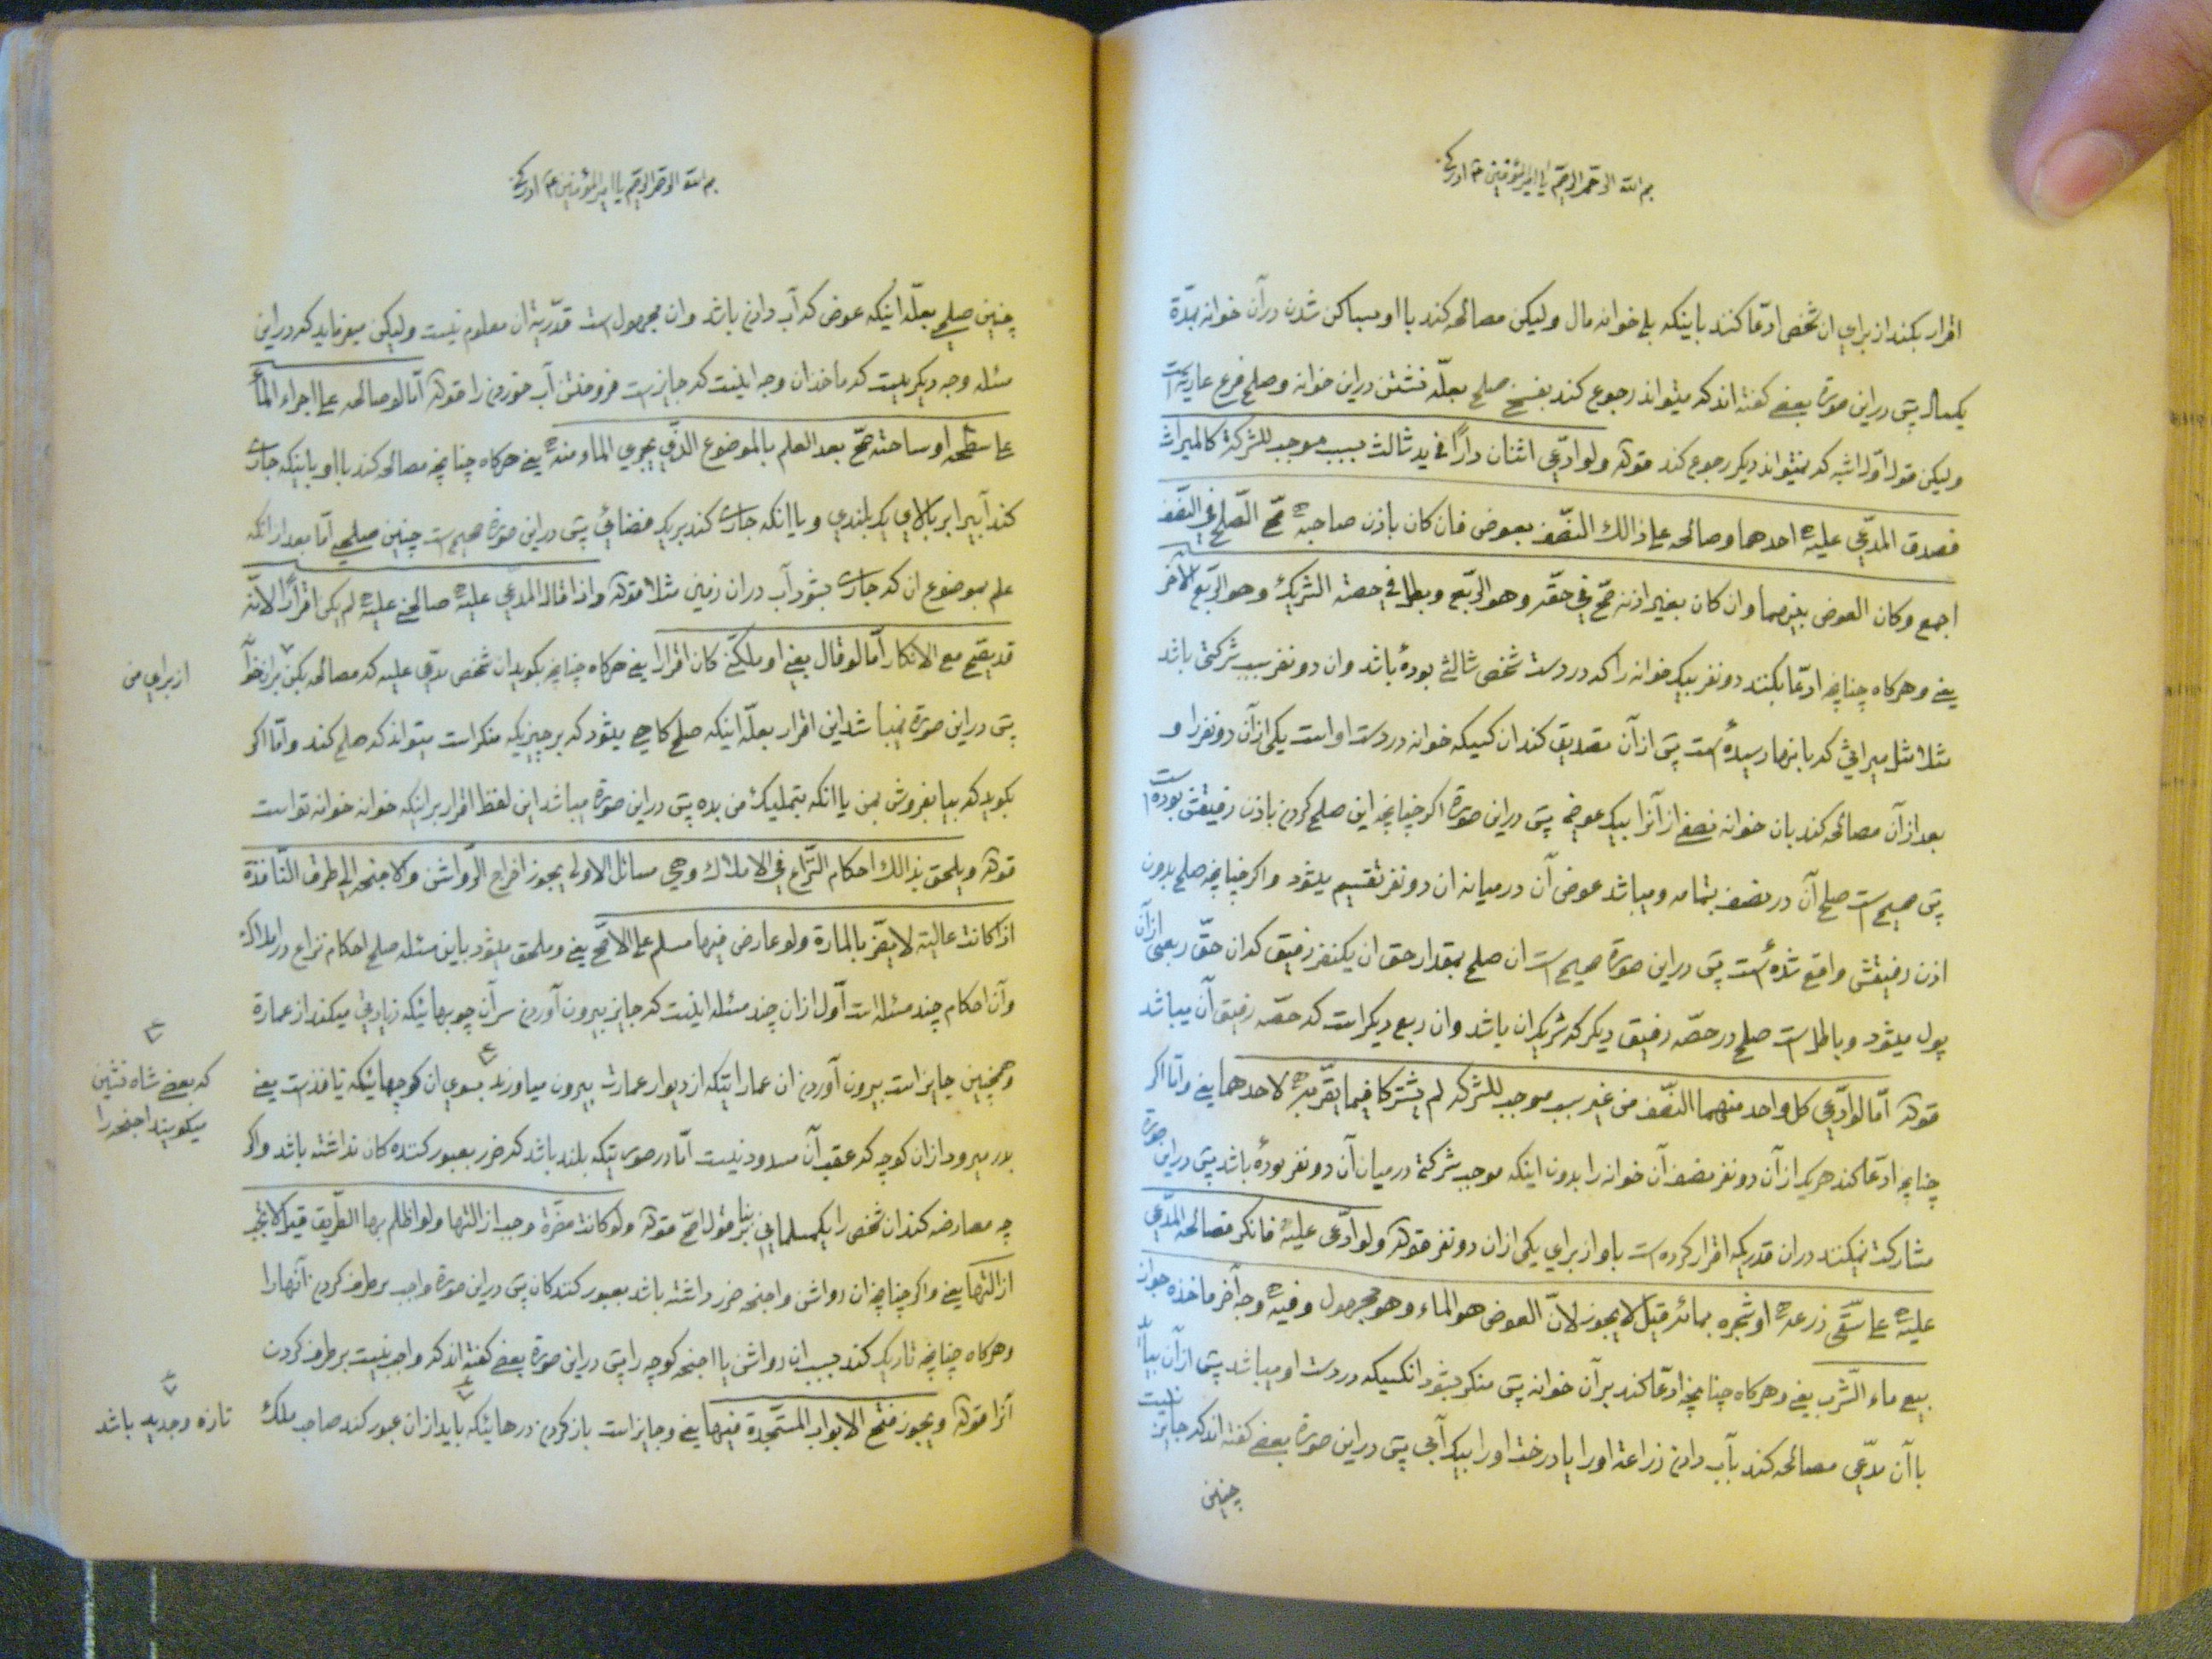 بسم الله الرحمن الرحیم یا امیرالمؤمنین ع ادرکنی
اقرار بکند از برای ان شخص ادعا کننده باینکه بلی خوانه مال ولیکن مصالحه کند با او بساکن شدن در آن خوانه بمدّة
یکسال پس در این صورة بعضی کفته اند که میتواند رجوع کند بفسخ صلح بعلّه نشتن در این خوانه و صلح فرع عاریه است
ولیکن قول اوّل اشبه که نمیتواند دیکر رجوع کند قوله ولو ادّعی اثنان داراً فی ید ثالث بسبب موجب للشرکة کالمیراث
فصدق المدّعی علیه احدهما وصالحه علی ذالك النصف بعوض فان کان باذن صاحبه صحّ الصّلح فی النّصف
اجمع وکان العوض بینهما وان کان بغیر اذنه صحّ فی حقّه وهو الرّبع وبطل فی حصة الشریك وهو الرّبع الاخر
یعنی و هرکاه چنانچه ادّعا بکنند دو نفر بیک خوانه را که در دست شخص ثالثی بودهٔ باشد وان دو نفر بسبب شرکتی باشد
مثلا مثل میراثی که بانها رسیدهٔ است پس از آن تصدیق کند ان کسیکه خوانه در دست او است یکی از آن دو نفر را و
بعد از آن مصالحه کند بان خوانه نصفی از آنرا بیک عوضی پس در این صورة اکر چنانچه این صلح کردن باذن رفیقش بوده است
پس صحیح است صلح آن در نصف بتمامه ومیباشد عوض آن در میانه ان دو نفر تقسیم میشود و اکر چنانچه صلح بدون
اذن رفیقش واقع شدهٔ است پس در این صورة صحیح است ان صلح بمقدار حق ان یکنفر رفیق که ان حقّ ربعی از آن
پول میشود و باطل است صلح در حصّه رفیق دیکر که شریك ان باشد وان ربع دیکر است که حصّه رفیق آن میباشد
قوله امّا لو ادّعی کل واحد منهما النّصف من غیر سبب موجب للشرکه لم یشترکا فیما یقرّ به لاحدهما یعنی وامّا اکر
چنانچه ادّعا کند هریك از آن دو نفر نصف آن خوانه را بدون اینکه موجب شرکة در میان آن دو نفر بودهٔ باشد پس در این صورة
مشارکت نمیکنند در ان قدریکه اقرار کرده است باو از برای یکی از ان دو نفر قوله ولو ادّعی علیه فانکر فصالحه المدّعی
علیه علی سقی زرعه او شجره بمائه قیل لا یجوز لانّ العوض هو الماء وهو مجهول وفیه وجه آخر ماخذه جواز
بیع ماء الشّرب یعنی و هرکاه چنانچه ادّعا کند بر آن خوانه پس منکر بشود انکسیکه در دست او میباشد پس از آن بیاید
با آن مدّعی مصالحه کند بآب دادن زراعة او را یا درخت او را بیک آبی پس در این صورة بعضی کفته اند که جایز نیست
چنین
بسم الله الرحمن الرحیم یا امیرالمؤمنین ع ادرکنی
چنین صلحی بعلّه اینکه عوض که آب دادن باشد وان مجهول است قدریّة ان معلوم نیست ولیکن میفرماید که در این
مسئله وجه دیکریست که ماخذ ان وجه اینست که جایز است فروختن آب خوردن را قوله امّا لو صالحه علی اجراء الماء
علی سطحه او ساحته صحّ بعد العلم بالموضع الذّی یجری الماء منه یعنی هرکاه چنانچه مصالحه کند با او باینکه جاری
کند آبی را بر بالای یک بلندی و یا انکه جاری کند بر یک فضائی پس در این صورة صحیح است چنین صلحی امّا بعد از انکه
علم بموضع ان که جاری بشود آب در ان زمین مثلا قوله واذا قال المدعی علیه صالحنی علیه لم یکن اقراراً لانّه
قد یصّح مع الانکار امّا لو قال بعنی او ملکنّی کان اقراراً یعنی هرکاه چنانچه بکوید ان شخص مدّعی علیه که مصالحه بکن بر این خوانه
از برای من
پس در این صورة نمیباشد این اقرار بعلّه اینکه صلح کاهی میشود که بر چیزیکه منکر است میتواند که صلح کند وامّا اکر
بکوید که بیا بفروش بمن یا انکه بتملیك من بده پس در این صورة میباشد این لفظ اقرار بر اینکه خوانه خوانه تو است
قوله ویلحق بذالك احکام النّزاع فی الاملاك وهی مسائل الاولی یجوز اخراج الرّواشن والاجنحه الی طرق النّافذة
اذا کانت عالیة لا یضّر بالمارة ولو عارض فیها مسلم علی الاصّح یعنی و ملحق میشود باین مسئله صلح احکام نزاع در املاك
وآن احکام چند مسئله است اوّل از ان چند مسئله اینست که جایز بیرون آوردن سر آن چوبهائیکه زیادتی میکند از عمارة
وهمچنین جایز است بیرون آوردن ان عماراتیکه از دیوار عمارت بیرون میاورند بسوی ان کوچهائیکه نافذ است یعنی
که بعضی شاه نشین
میکویند اجنحه را
بدر میرود از ان کوچه که عقب آن مسدود نیست امّا در صورتیکه بلند باشد که ضرر بعبور کننده کان نداشته باشد واکر
چه معارضه کند ان شخص را یکمسلمانی بنابر قول اصّح قوله ولو کانت مضّرة وجب ازالتها ولو اظلم بها الطّریق قیل لا یجب
ازالتها یعنی و اکر چنانچه ان رواشن و اجنحه ضرر داشته باشد بعبور کنندکان پس در این صورة واجب برطرف کردن آنهارا
و هرکاه چنانچه تاریك کند بسبب ان رواشن یا اجنحه کوچه را پس در این صورة بعضی کفته اند که واجب نیست برطرف کردن
آنرا قوله ویجوز فتح الابواب المستجدة فیها یعنی و جایز است باز کردن درهائیکه باید از ان عبور کند صاحب ملك
تازه و جدید باشد